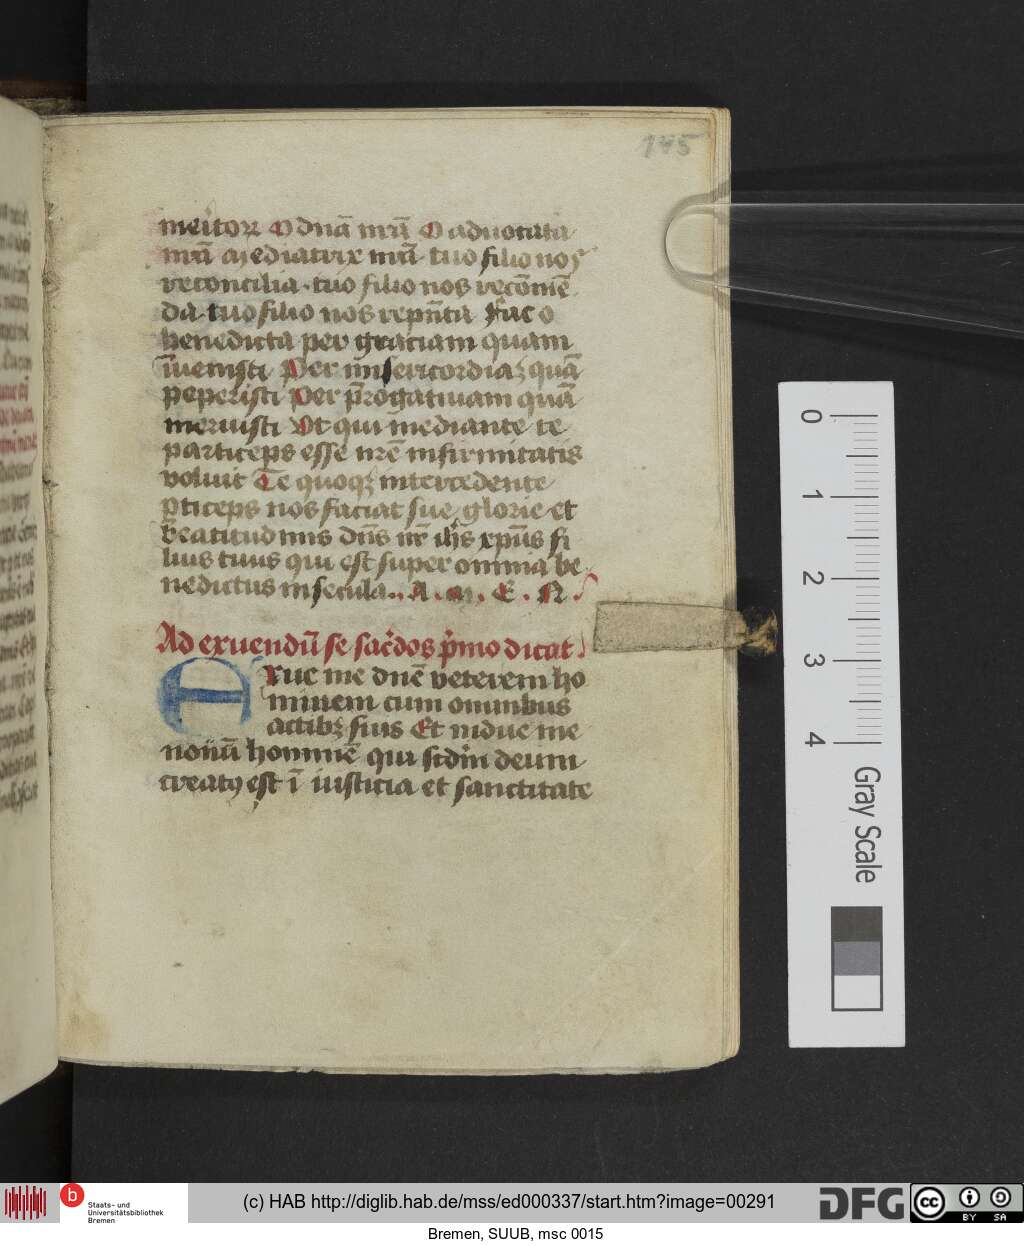 145
meitorꝫ O dnā mr̄ā O aduocata
mr̄ā mediatrix mr̄ā tuo filio nos
reconcilia tuo filio nos recōmē
da tuo filio nos repn̄ta Fac o
benedicta per graciam quam
īuenisti Per misericordiaꝫ quā
peperisti Per p̄rogatiuam quā
meruisti Vt qui mediante te
particeps esse nr̄e infirmitatis
voluit Te quoqꝫ intercedente
ꝑticeps nos faciat sue glorie et
beatitudinis dn̄s nr̄ ih̄s xpūs fi
lius tuus qui est super omnia be
nedictus in secula . A . m . E . N .
Ad exuendū se sac̄dos p̄mo dicat
Exue me dn̄e veterem ho
minem cum omnibus
actibꝫ suis Et indue me
nouū hominē qui scdm̄ deum
creatꝯ est ī iusticia et sanctitate
0
1
2
3
4
Gray Scale
b
Staats- und
Universitätsbibliothek
Bremen
(c) HAB http://diglib.hab.de/mss/ed000337/start.htm?image=00291
DFG
cc
BY SA
Bremen, SUUB, msc 0015